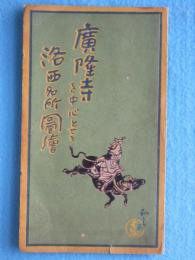 廣隆寺
を中心とせる
洛西名所圖繪